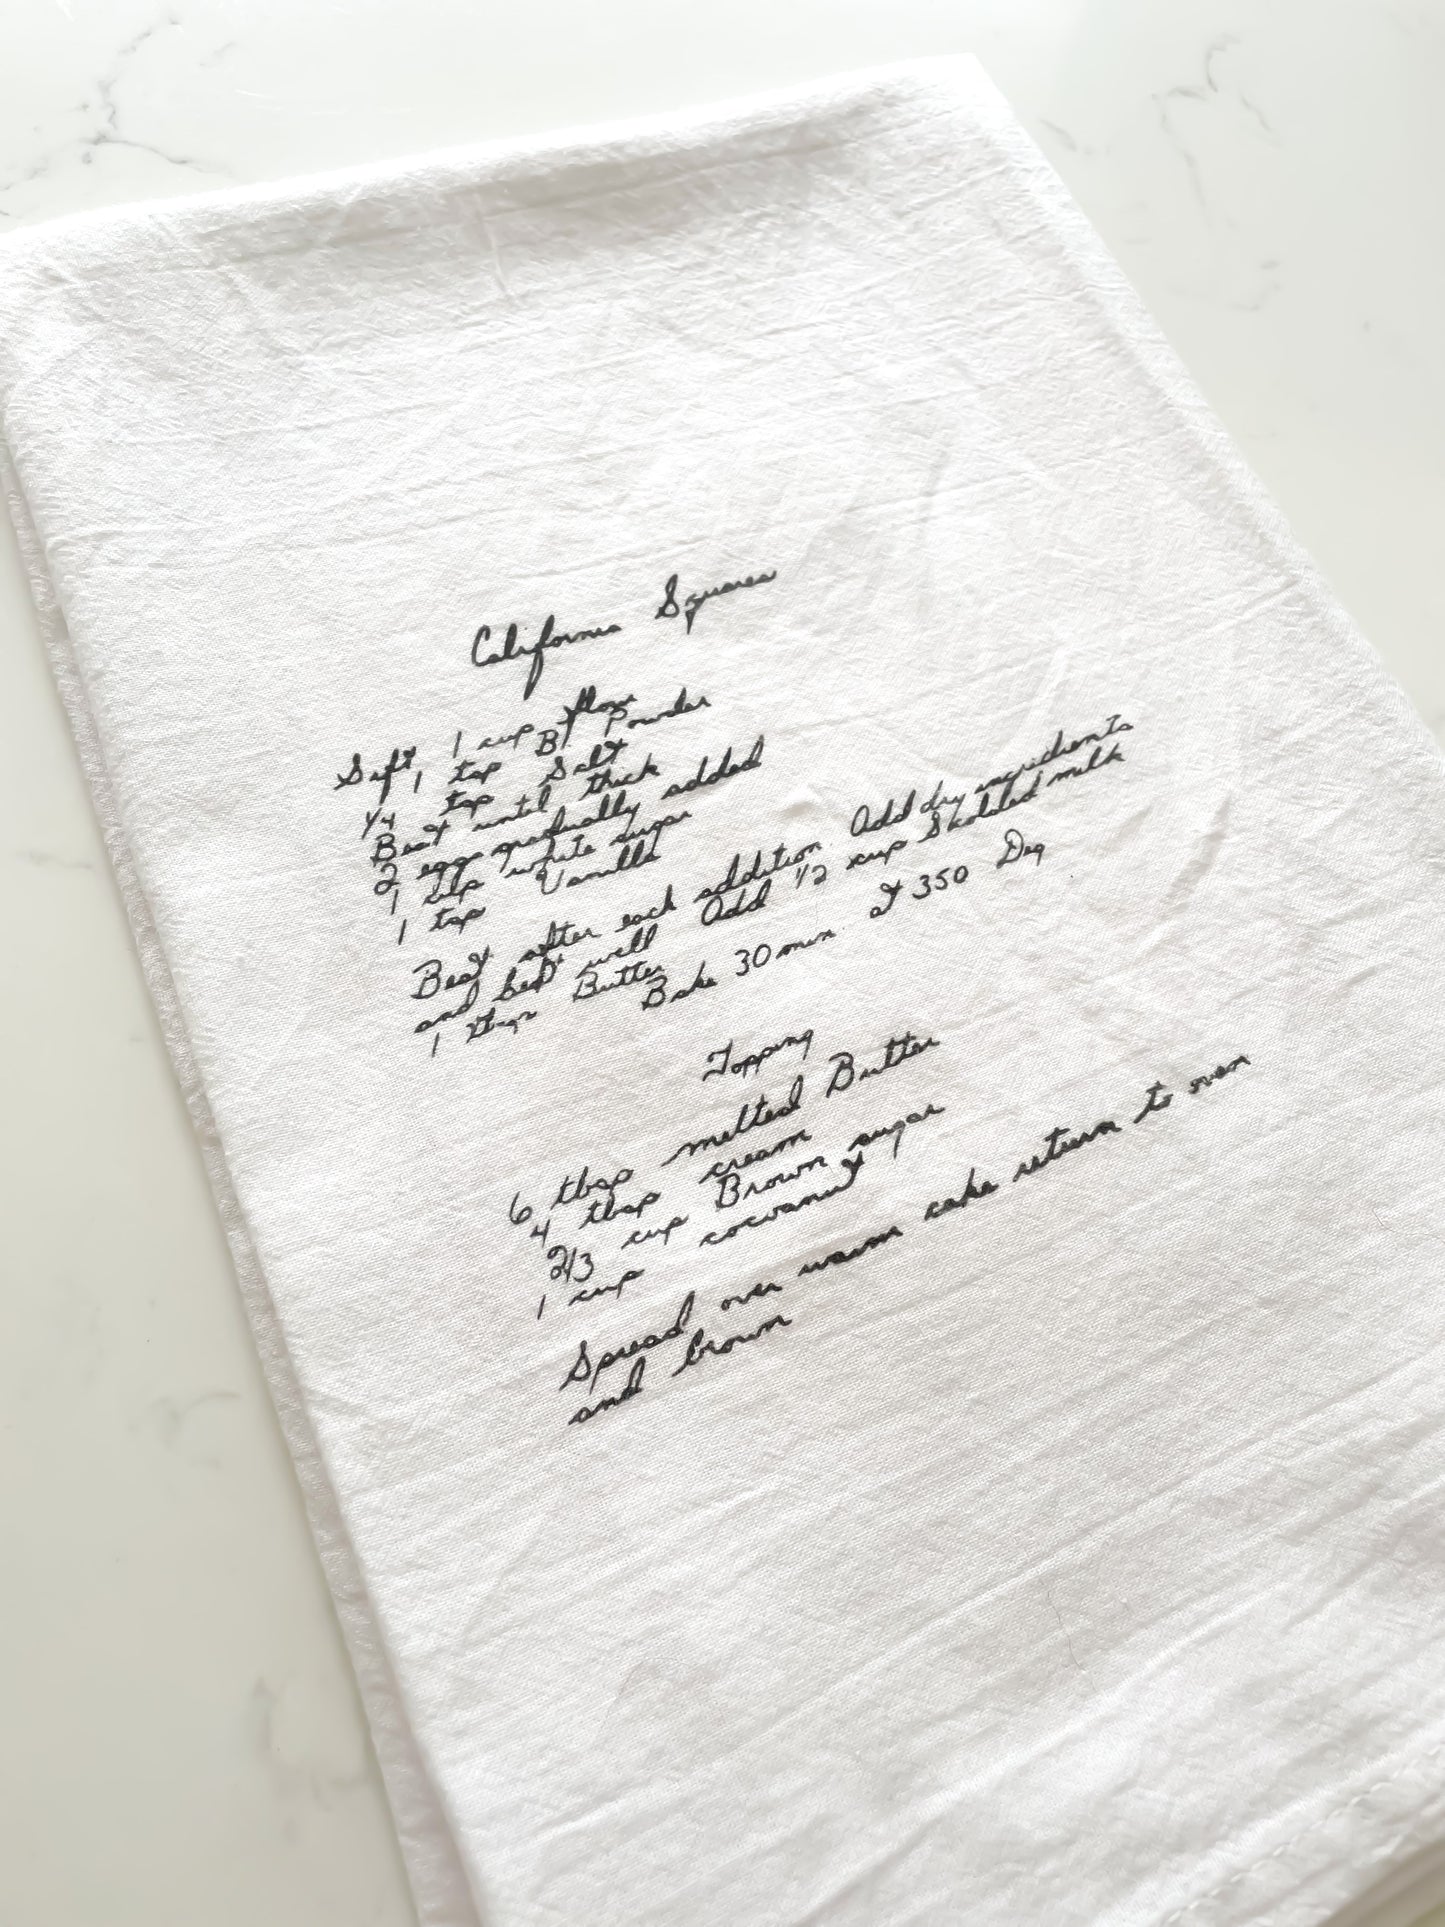 California Squares
Sift 1 cup flour
1 tsp B Powder
1/4 tsp Salt
Beat until thick
2 eggs gradually added
1 cup white sugar
1 tsp Vanilla
Beat after each addition Add dry ingredients
and beat well Add 1/2 cup Skalded milk
1 tbsp Butter Bake 30 min at 350 Deg
Topping
6 tbsp melted Butter
4 tbsp cream
2/3 cup Brown sugar
1 cup cocoanut
Spread over warm cake return to oven
and brown